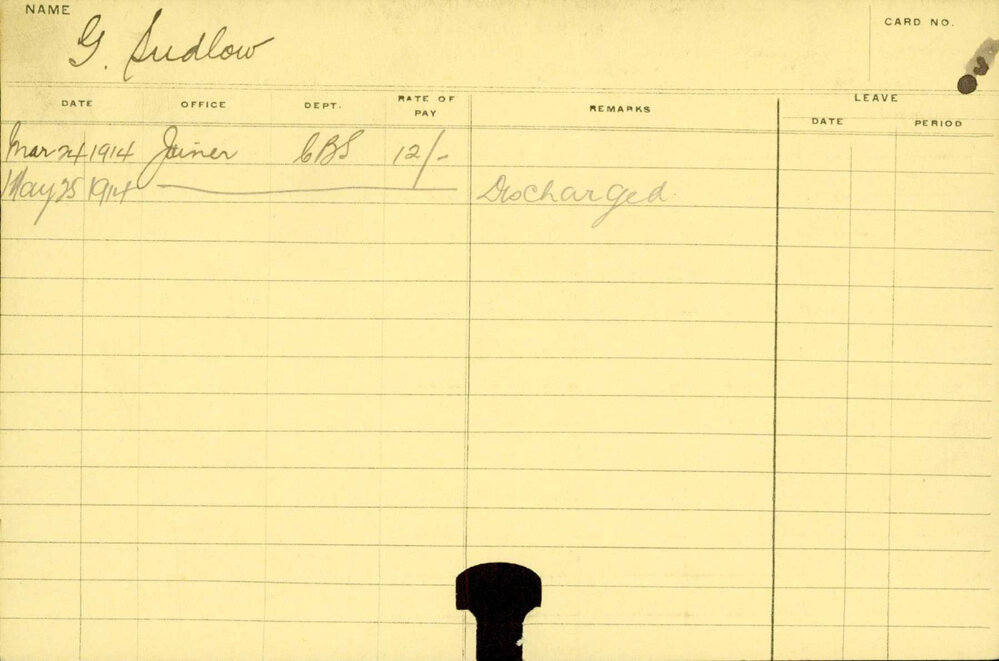 NAME G. Sudlow CARD NO.
DATE OFFICE DEPT. RATE OF PAY REMARKS LEAVE
DATE PERIOD
Mar 24 1914 Joiner CBS 12/-
May 25 1914 Discharged